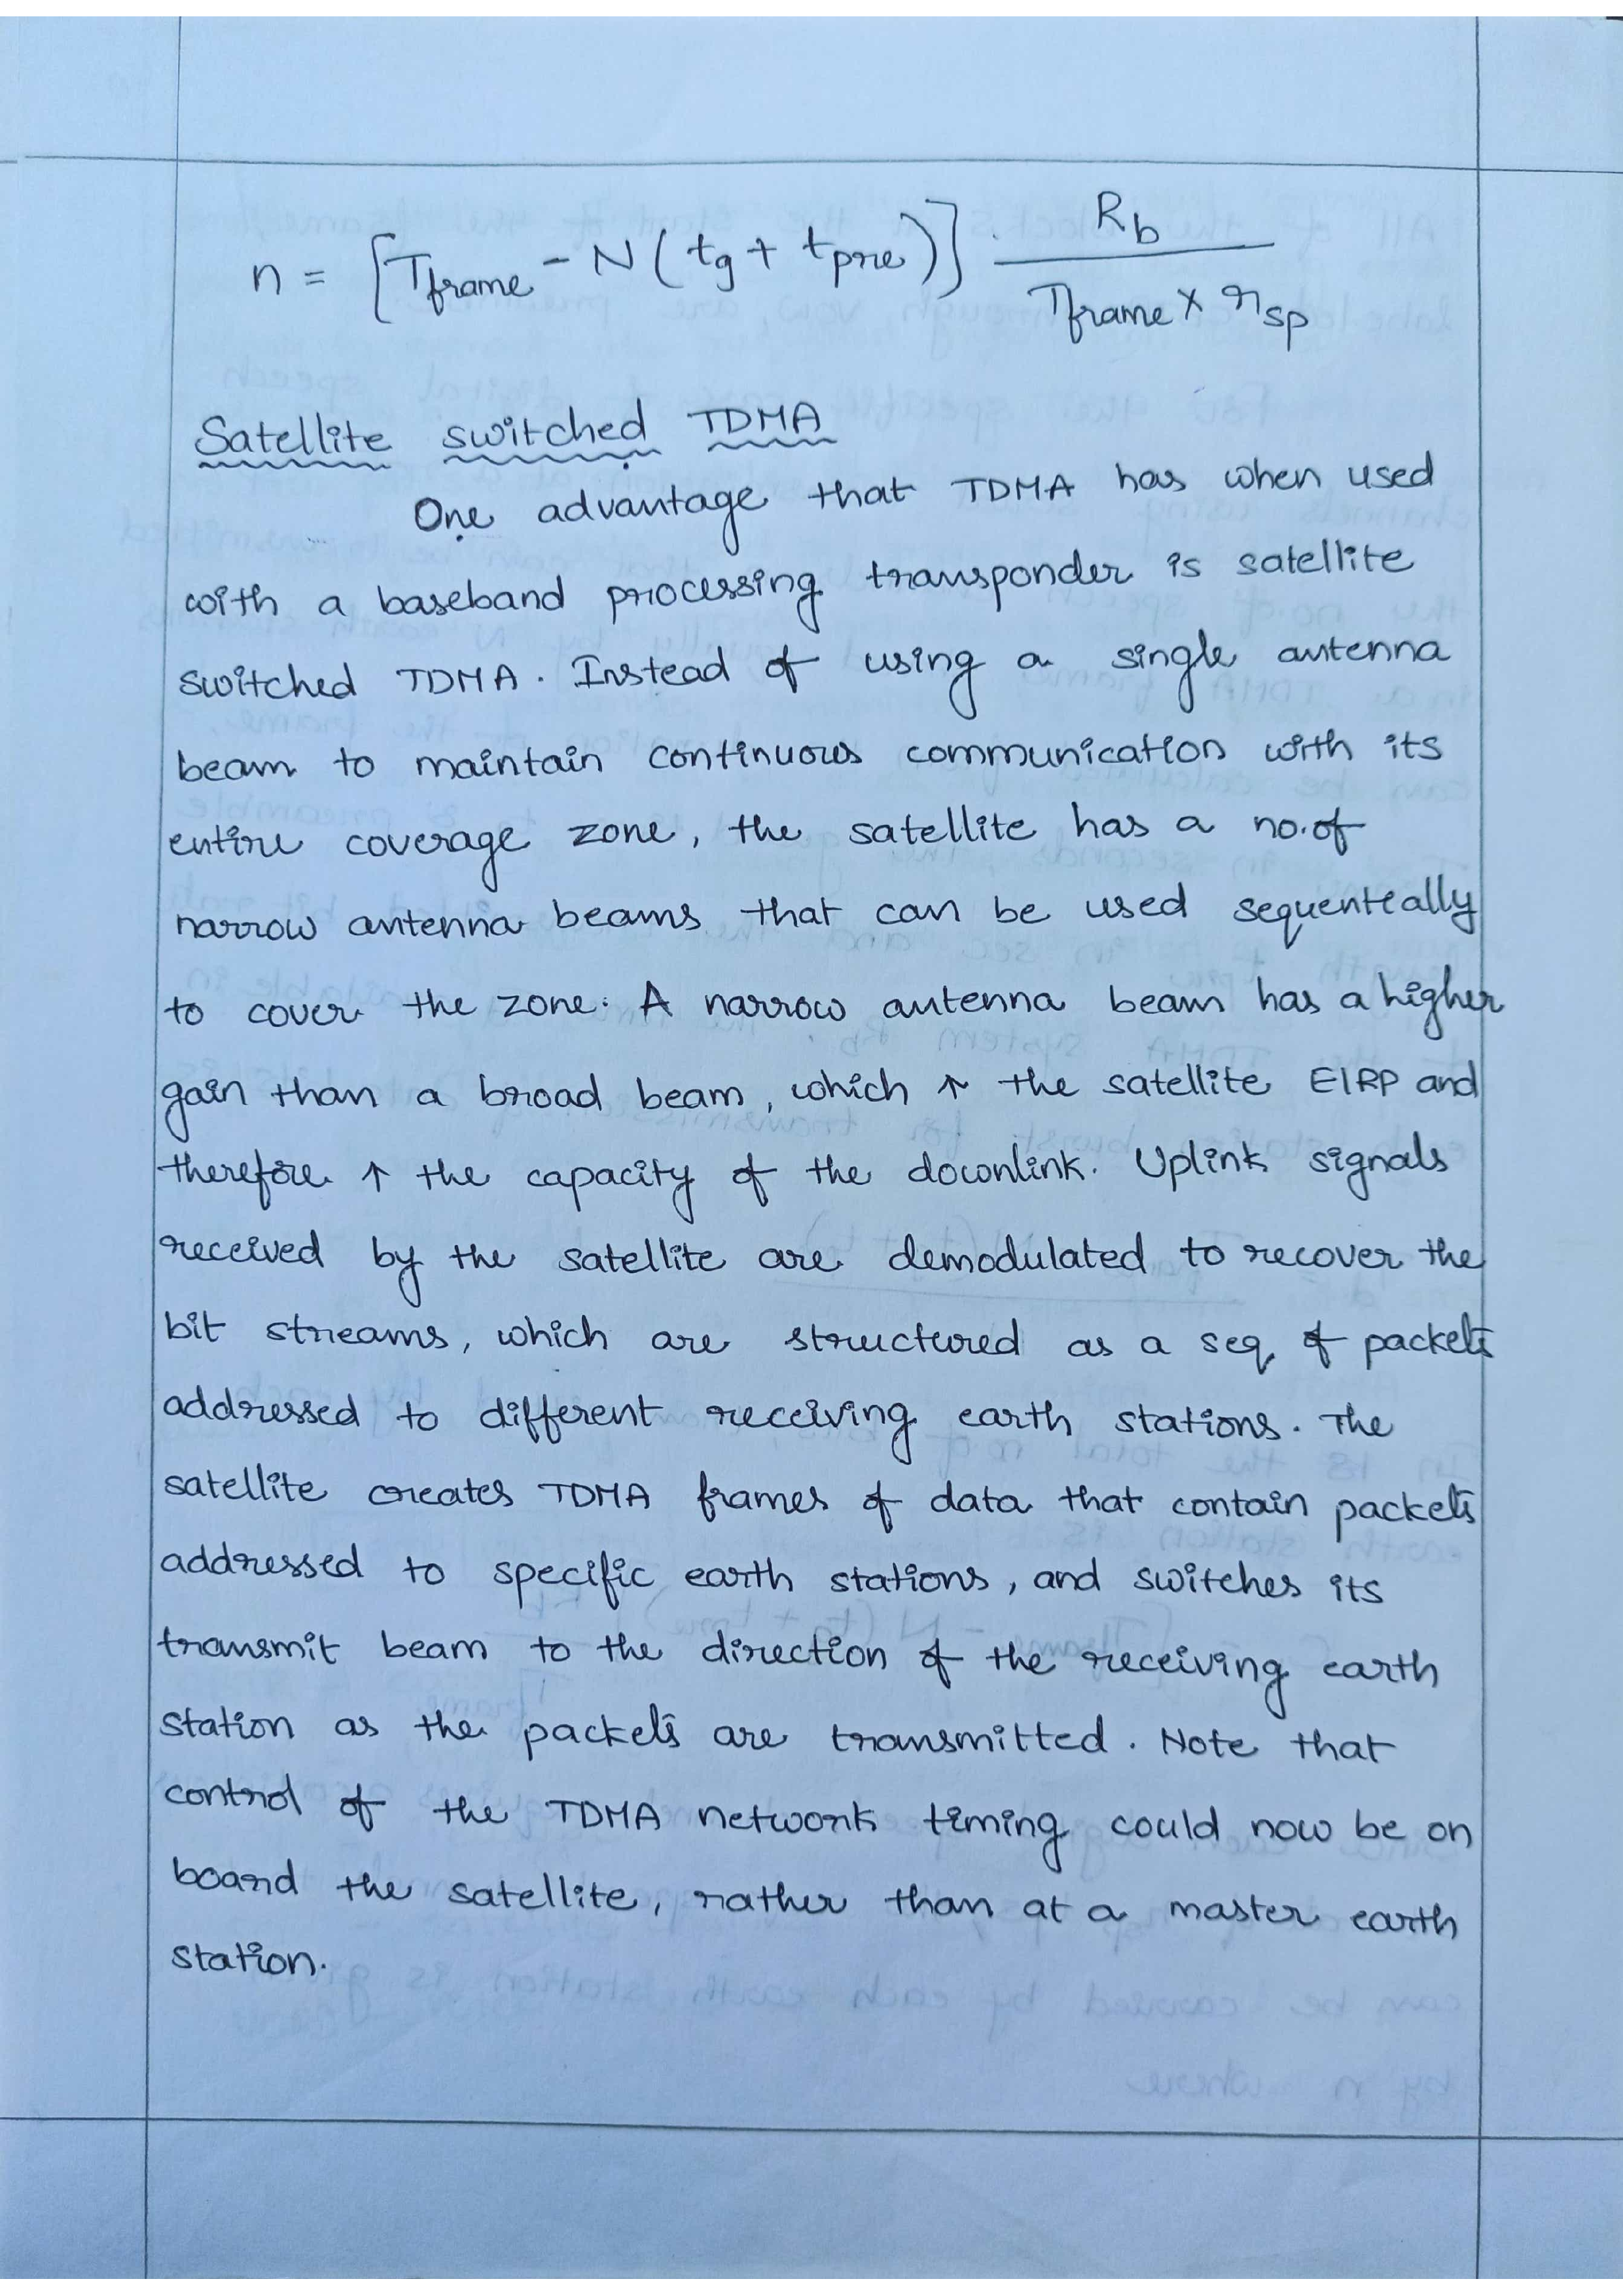 n = [Tframe - N(tg + tpre)] . Rb / Tframe × rsp
Satellite switched TDMA
One advantage that TDMA has when used
with a baseband processing transponder is satellite
switched TDMA. Instead of using a single antenna
beam to maintain continuous communication with its
entire coverage zone, the satellite has a no.of
narrow antenna beams that can be used sequentially
to cover the zone. A narrow antenna beam has a higher
gain than a broad beam, which ↑ the satellite EIRP and
therefore ↑ the capacity of the downlink. Uplink signals
received by the satellite are demodulated to recover the
bit streams, which are structured as a seq of packets
addressed to different receiving earth stations. The
satellite creates TDMA frames of data that contain packets
addressed to specific earth stations, and switches its
transmit beam to the direction of the receiving earth
station as the packets are transmitted. Note that
control of the TDMA network timing could now be on
board the satellite, rather than at a master earth
station.